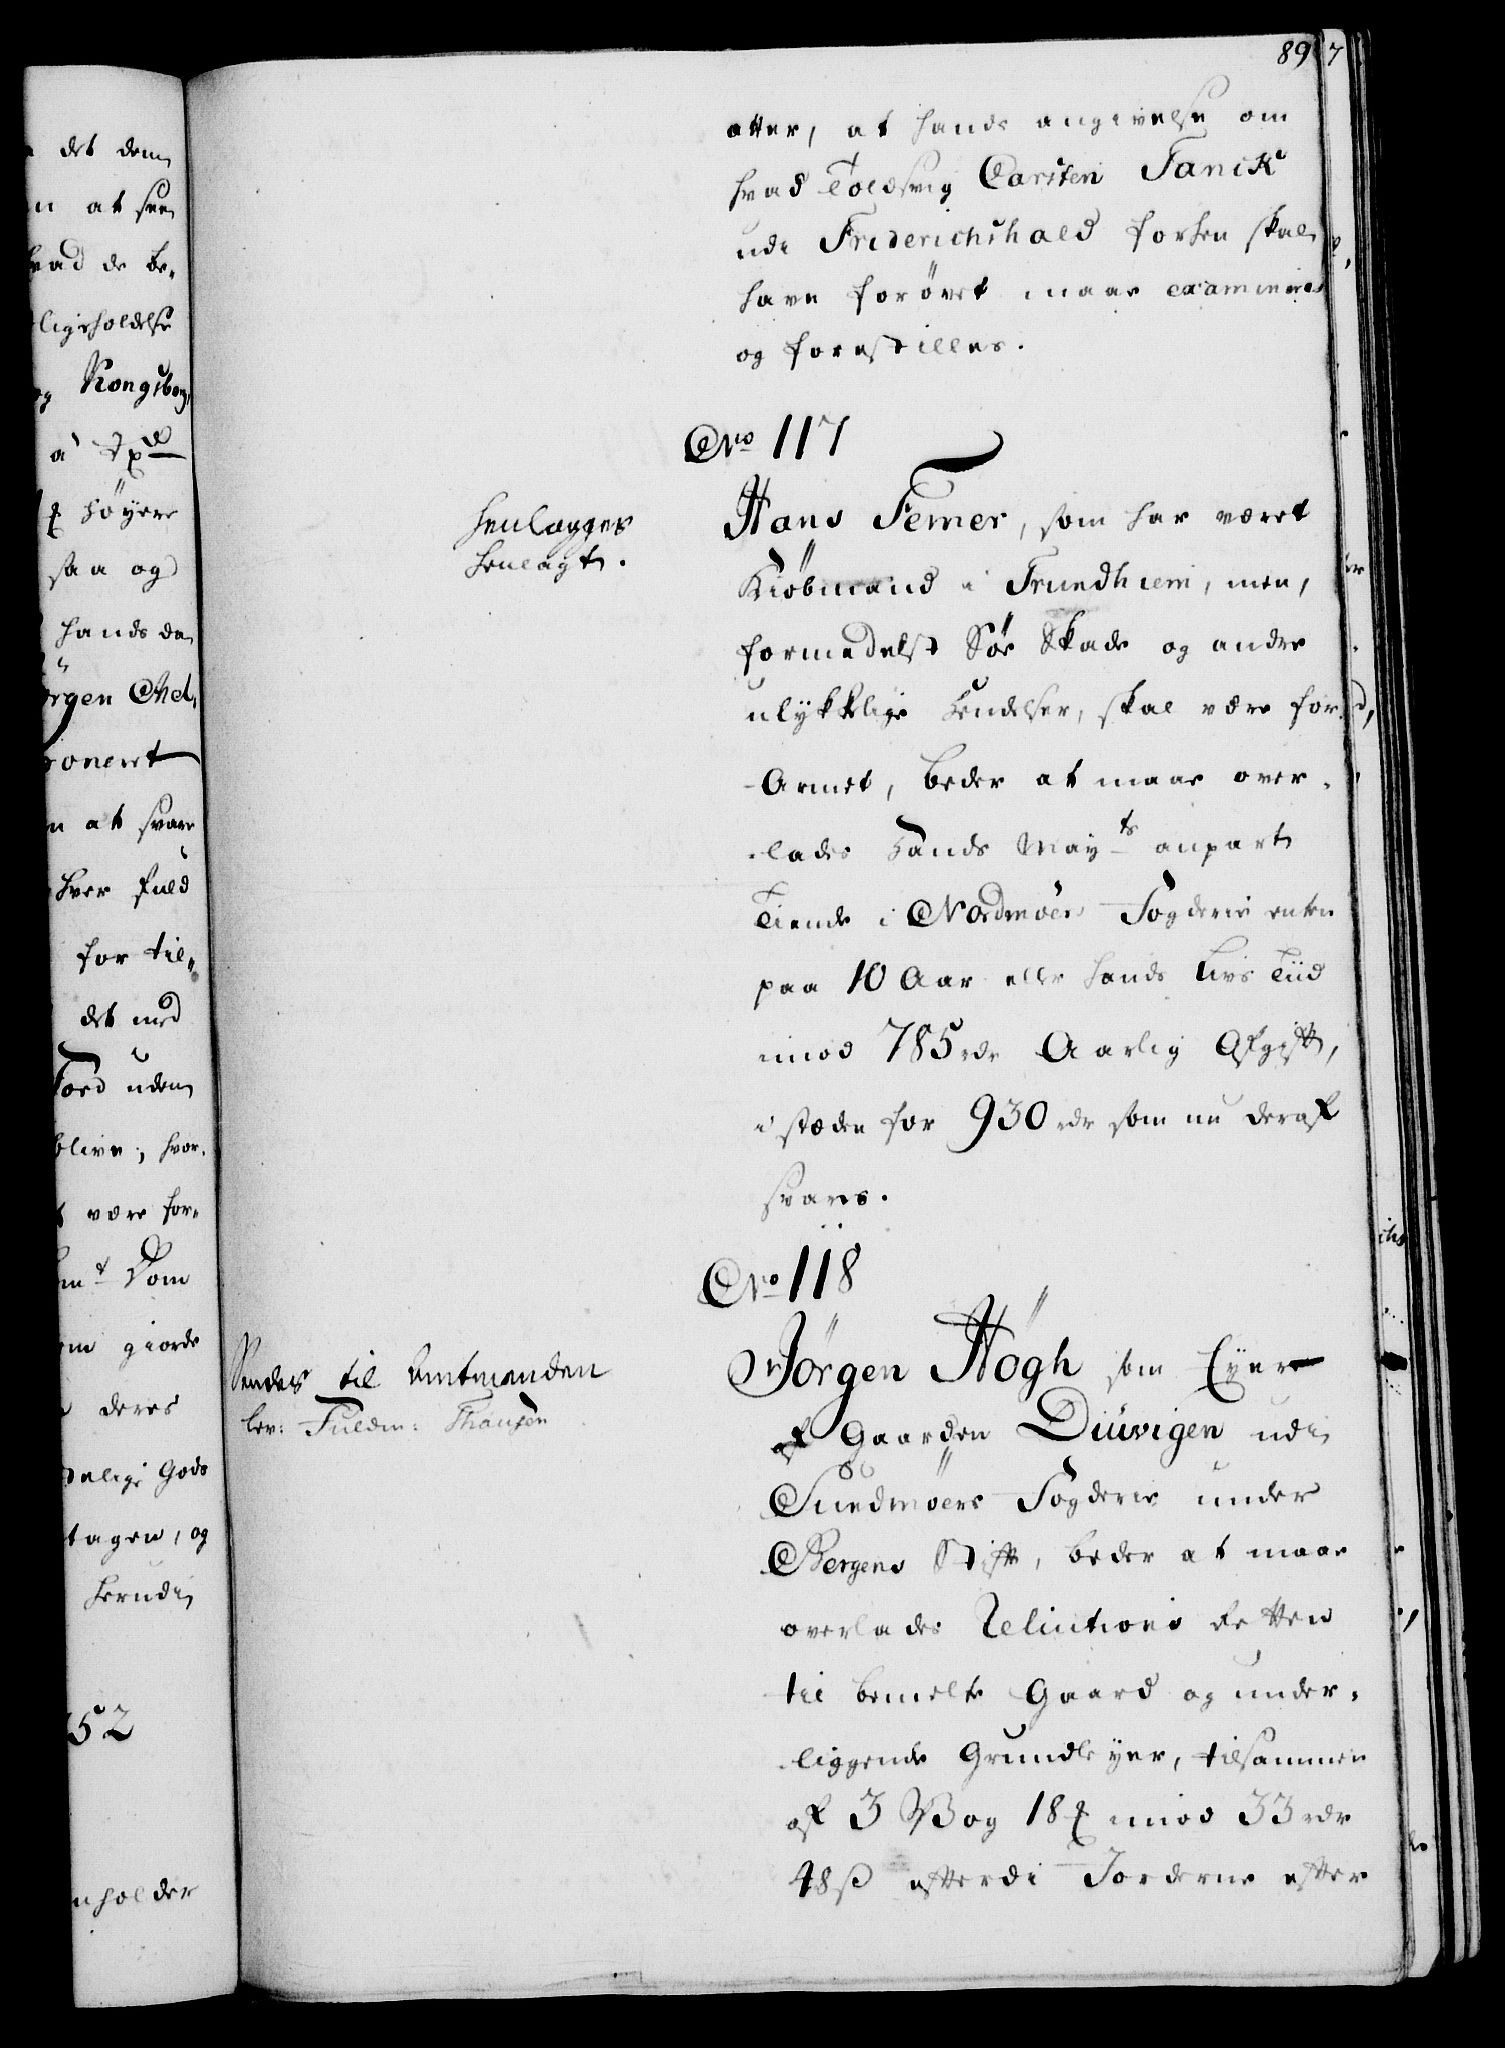 897
atter, at hands angivelse om
hvad Toldsvig Carsten Tank
udi Friderichshald forhen skal
have forøvet maae examineres
og forestilles.
No 117
henlægges
henlagt.
Hans Femer, som har været
Kiøbmand i Trundhiem, men,
formedelst Søe Skade og andre
ulykkelige hendelser, skal være for-
Armet, beder at maae over-
lades hands Mayts anpart
Tiende i Nordmøers Fogderie enten
paa 10 Aar eller hands Livs Tiid
imod 785 rdr Aarlig Afgift,
i stæden for 930 rdr som nu deraf
svares.
No 118
Sendes til Amtmanden
lev: Fuldm: Thausen
Jørgen Høgh som Eyere
af Gaarden Diuvigen udi
Sundmøers Fogderie under
Bergens Stift, beder at maae
overlades Reluitions Retten
til bemelte Gaard og under-
liggende Grundleyer, tilsammen
af 3 W og 18 ℔ imod 33 rdr
48 ß efterdi Jorderne efter
det dem
at see
hvad de be-
ligeholdelse
og Kongsberg,
høyere
saa og
hands da
at svare
hver fuld
for til-
det med
uden
blive, hvor-
være for-
Dom
giorde
deres
Gods
tagen, og
herudi
52